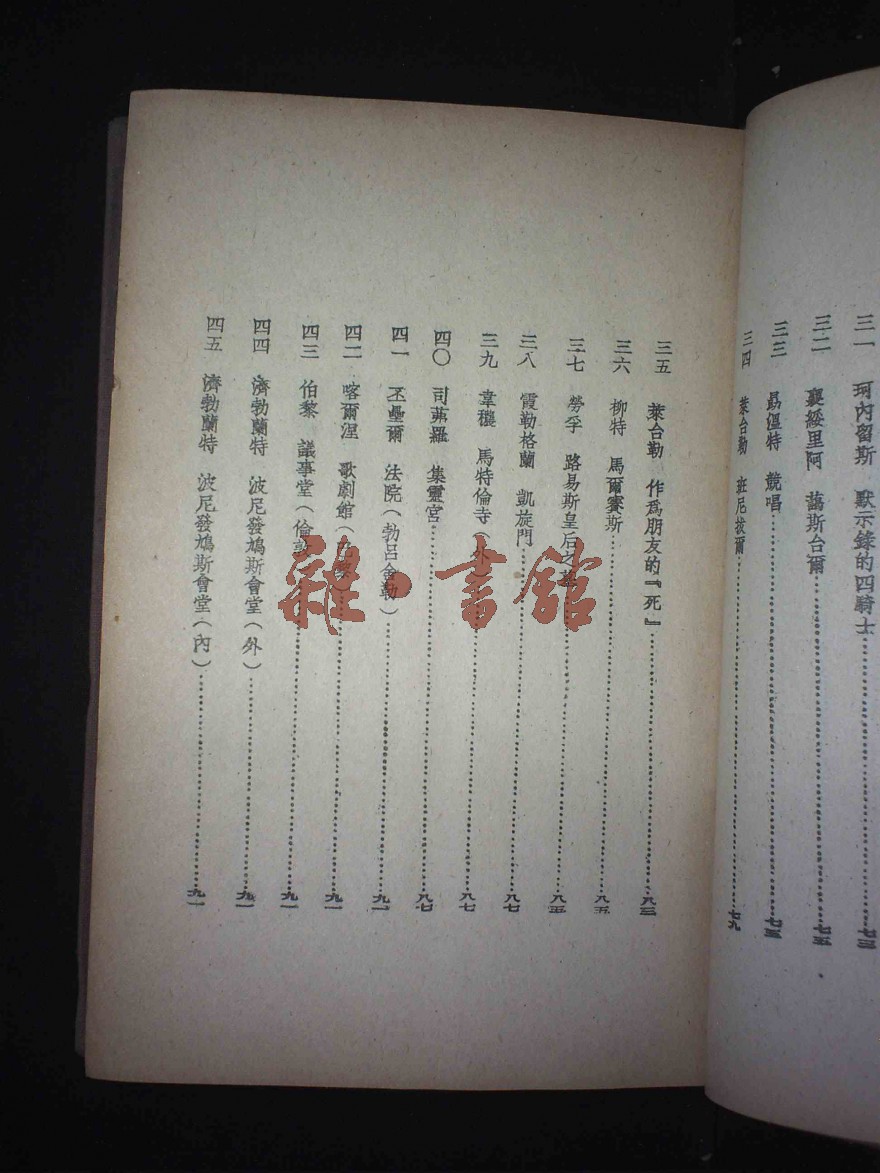 三一 珂內留斯 默示錄的四騎士……七三
三二 襄綏里阿 藹斯台爾……七五
三三 勗溫特 競唱……七五
三四 萊台勒 班尼拔爾……七九
三五 萊台勒 作爲朋友的『死』……八三
三六 柳特 馬爾賽斯……八五
三七 勞孚 路易斯皇后之墓……八五
三八 霞勒格蘭 凱旋門……八七
三九 韋穠 馬特倫寺（外）……八七
四〇 司茀羅 集靈宮……八七
四一 丕壘爾 法院（勃呂舍勒）……九一
四二 喀爾涅 歌劇館（巴黎）……九一
四三 伯黎 議事堂（倫敦）……九一
四四 濟勃蘭特 波尼發鳩斯會堂（外）……九一
四五 濟勃蘭特 波尼發鳩斯會堂（內）……九一
雜·書館